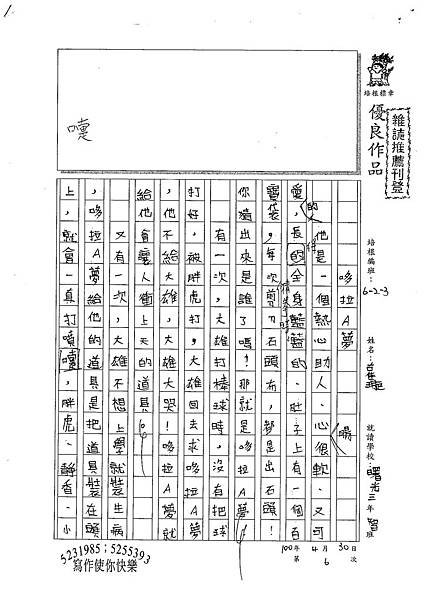 雜誌推薦刊登
培根標章
優良作品
培根編班：6-2-3
姓名：
就讀學校 曙光三年智班
100年4月30日
第6次
嚏
哆拉A夢
他是一個熱心助人、心很軟、又可
愛，長的全身藍藍的、肚子上有一個百
寶袋，每次剪刀石頭布，都是出石頭！
你猜出來是誰了嗎？那就是哆拉A夢。
有一次，大雄打棒球時，沒有把球
打好，被胖虎打，大雄回去求哆拉A夢
，他不給大雄，大雄大哭！哆拉A夢就
給他會讓人衝上天的道具。
又有一次，大雄不想上學就裝生病
，哆拉A夢給他的道具是把道具裝在頭
上，就會一直打噴嚏，胖虎、靜香、小
5231985；5255393
寫作使你快樂